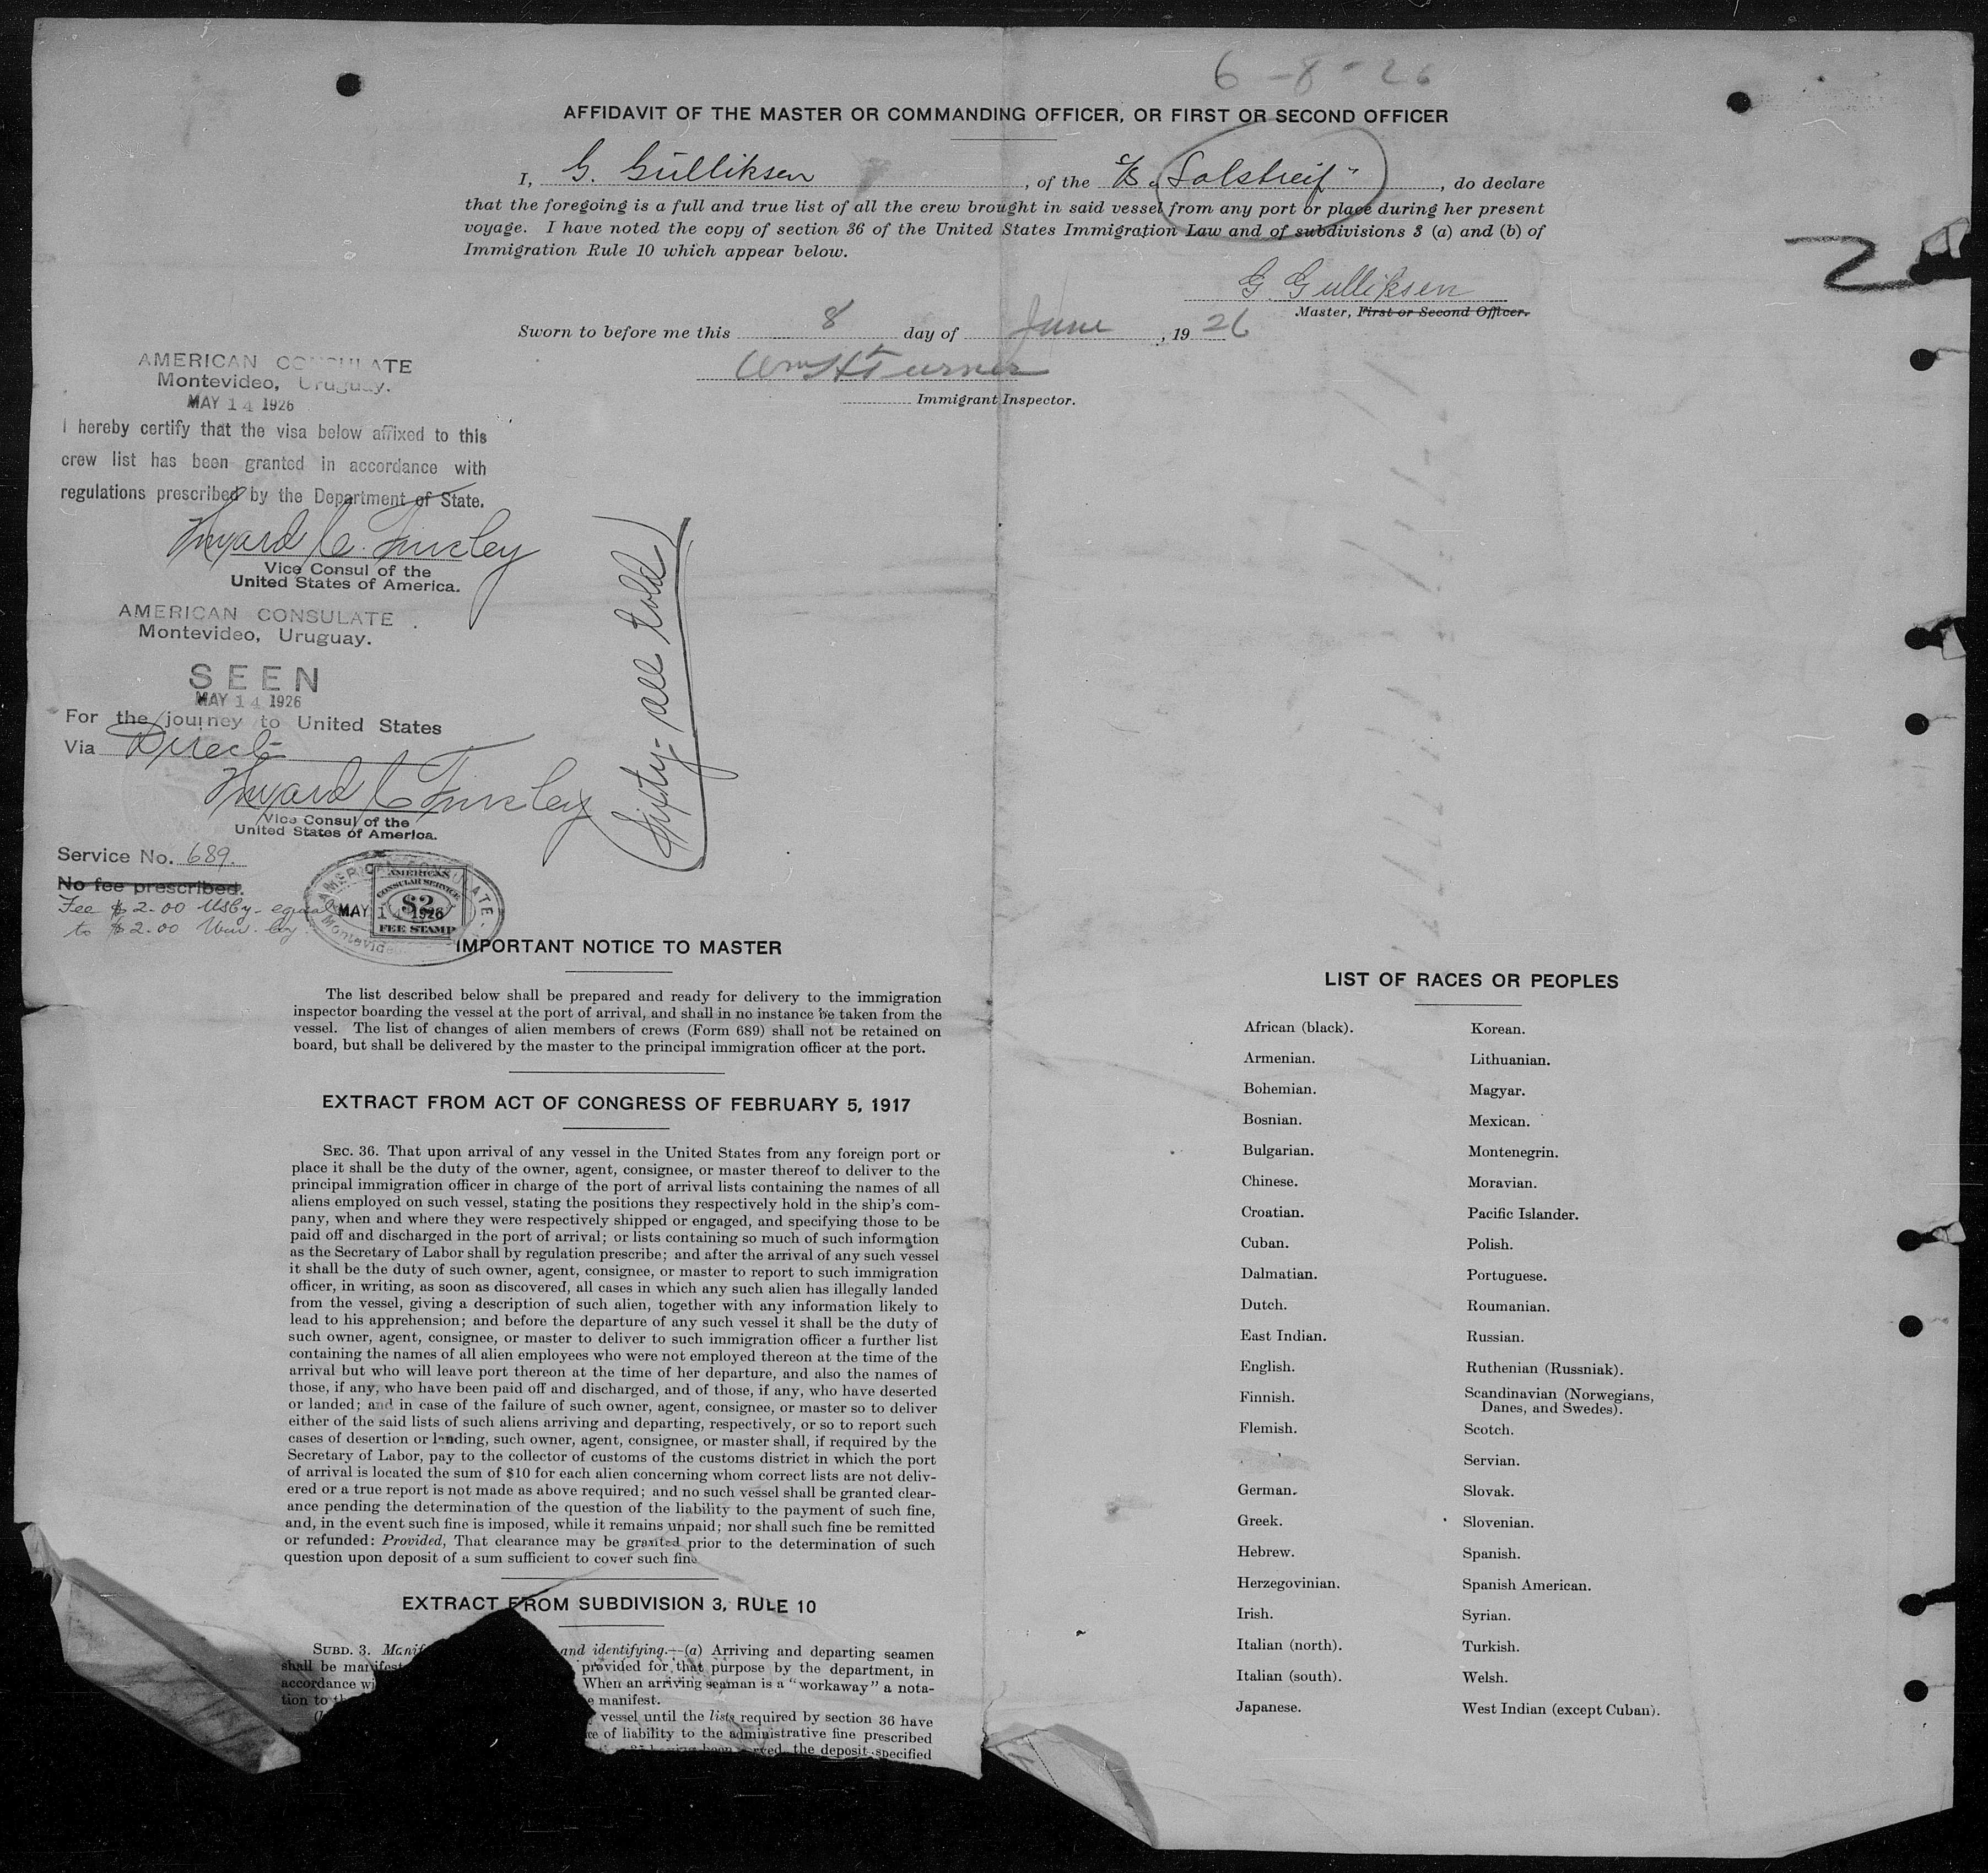 6-8-26
AFFIDAVIT OF THE MASTER OR COMMANDING OFFICER, OR FIRST OR SECOND OFFICER
I, G. Gulliksen, of the S/S "Solstreif", do declare
that the foregoing is a full and true list of all the crew brought in said vessel from any port or place during her present
voyage. I have noted the copy of section 36 of the United States Immigration Law and of subdivisions 3 (a) and (b) of
Immigration Rule 10 which appear below.
G Gulliksen
Master, First or Second Officer.
Sworn to before me this 8 day of June, 1926
Wm H Turner
Immigrant Inspector.
2
AMERICAN CONSULATE
Montevideo, Uruguay.
MAY 14 1926
I hereby certify that the visa below affixed to this
crew list has been granted in accordance with
regulations prescribed by the Department of State.
Vice Consul of the
United States of America.
AMERICAN CONSULATE
Montevideo, Uruguay.
SEEN
MAY 14 1926
For the journey to United States
Via Direct
Vice Consul of the
United States of America.
Service No. 689.
No fee prescribed.
Fee $2.00 equal
to $2.00
all told
AMERICAN CONSULATE
Montevideo
AMERICAN
CONSULAR SERVICE
$2
MAY 14 1926
FEE STAMP
IMPORTANT NOTICE TO MASTER
The list described below shall be prepared and ready for delivery to the immigration
inspector boarding the vessel at the port of arrival, and shall in no instance be taken from the
vessel. The list of changes of alien members of crews (Form 689) shall not be retained on
board, but shall be delivered by the master to the principal immigration officer at the port.
EXTRACT FROM ACT OF CONGRESS OF FEBRUARY 5, 1917
SEC. 36. That upon arrival of any vessel in the United States from any foreign port or
place it shall be the duty of the owner, agent, consignee, or master thereof to deliver to the
principal immigration officer in charge of the port of arrival lists containing the names of all
aliens employed on such vessel, stating the positions they respectively hold in the ship's com-
pany, when and where they were respectively shipped or engaged, and specifying those to be
paid off and discharged in the port of arrival; or lists containing so much of such information
as the Secretary of Labor shall by regulation prescribe; and after the arrival of any such vessel
it shall be the duty of such owner, agent, consignee, or master to report to such immigration
officer, in writing, as soon as discovered, all cases in which any such alien has illegally landed
from the vessel, giving a description of such alien, together with any information likely to
lead to his apprehension; and before the departure of any such vessel it shall be the duty of
such owner, agent, consignee, or master to deliver to such immigration officer a further list
containing the names of all alien employees who were not employed thereon at the time of the
arrival but who will leave port thereon at the time of her departure, and also the names of
those, if any, who have been paid off and discharged, and of those, if any, who have deserted
or landed; and in case of the failure of such owner, agent, consignee, or master so to deliver
either of the said lists of such aliens arriving and departing, respectively, or so to report such
cases of desertion or landing, such owner, agent, consignee, or master shall, if required by the
Secretary of Labor, pay to the collector of customs of the customs district in which the port
of arrival is located the sum of $10 for each alien concerning whom correct lists are not deliv-
ered or a true report is not made as above required; and no such vessel shall be granted clear-
ance pending the determination of the question of the liability to the payment of such fine,
and, in the event such fine is imposed, while it remains unpaid; nor shall such fine be remitted
or refunded: Provided, That clearance may be granted prior to the determination of such
question upon deposit of a sum sufficient to cover such fine
EXTRACT FROM SUBDIVISION 3, RULE 10
SUBD. 3. Manif and identifying.—(a) Arriving and departing seamen
shall be manifest provided for that purpose by the department, in
accordance wi When an arriving seaman is a "workaway" a nota-
tion to th e manifest.
vessel until the lists required by section 36 have
ce of liability to the administrative fine prescribed
the deposit specified
LIST OF RACES OR PEOPLES
African (black).
Armenian.
Bohemian.
Bosnian.
Bulgarian.
Chinese.
Croatian.
Cuban.
Dalmatian.
Dutch.
East Indian.
English.
Finnish.
Flemish.
German.
Greek.
Hebrew.
Herzegovinian.
Irish.
Italian (north).
Italian (south).
Japanese.
Korean.
Lithuanian.
Magyar.
Mexican.
Montenegrin.
Moravian.
Pacific Islander.
Polish.
Portuguese.
Roumanian.
Russian.
Ruthenian (Russniak).
Scandinavian (Norwegians,
Danes, and Swedes).
Scotch.
Servian.
Slovak.
Slovenian.
Spanish.
Spanish American.
Syrian.
Turkish.
Welsh.
West Indian (except Cuban).